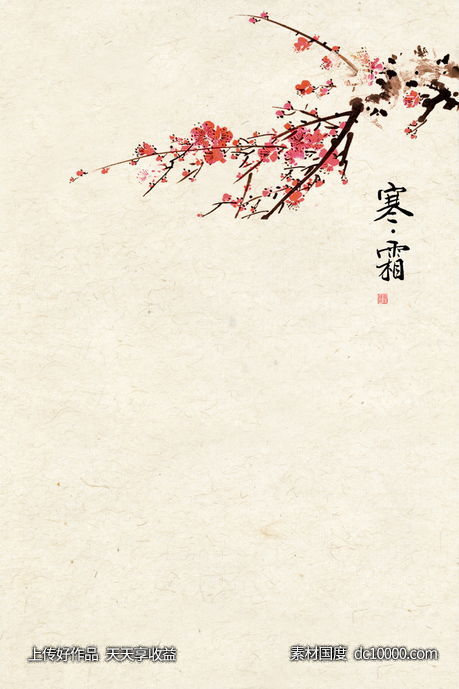 寒·霜
上传好作品 天天享收益
素材国度 dc10000.com